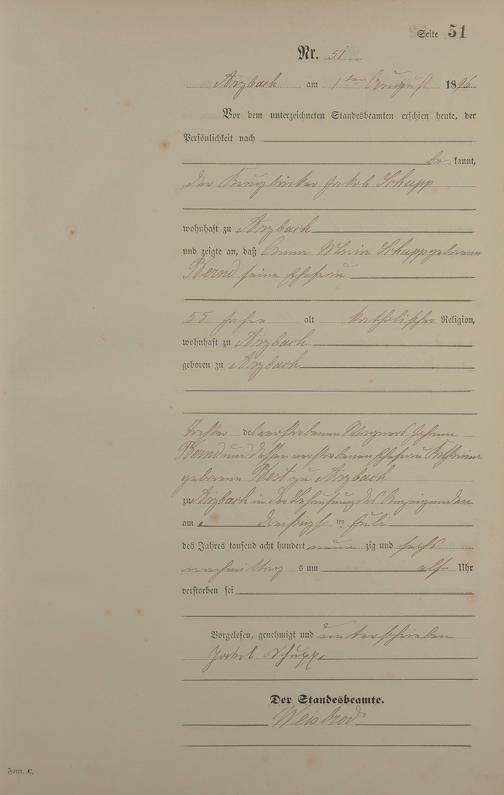 Seite 51
Nr. 51
Arzbach am 1ten August 1896
Vor dem unterzeichneten Standesbeamten erschien heute, der
Persönlichkeit nach
be kannt,
der Jakob Schupp
wohnhaft zu Arzbach
und zeigte an, daß Anna Maria Schupp geborene
Bernd seine Ehefrau
55 Jahre alt katholischer Religion,
wohnhaft zu Arzbach
geboren zu Arzbach
Tochter des verstorbenen Johann
Bernd und dessen verstorbenen Ehefrau
geborene zu Arzbach
zu Arzbach in der Behausung des Anzeigenden
am dreißigst en Juli
des Jahres tausend acht hundert neun zig und sechs
nachmittag s um elf Uhr
verstorben sei
Vorgelesen, genehmigt und unterschrieben
Jakob Schupp
Der Standesbeamte.
Weisbrod
Form. C.